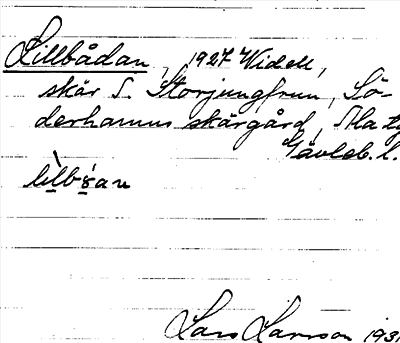 Lillbådan, 1927 Widell,
skär S. Storjungfrun, Sö-
derhamns skärgård, Ala tg
Gävleb. l.
lìlbǫ́an
Lars Larsson 1931